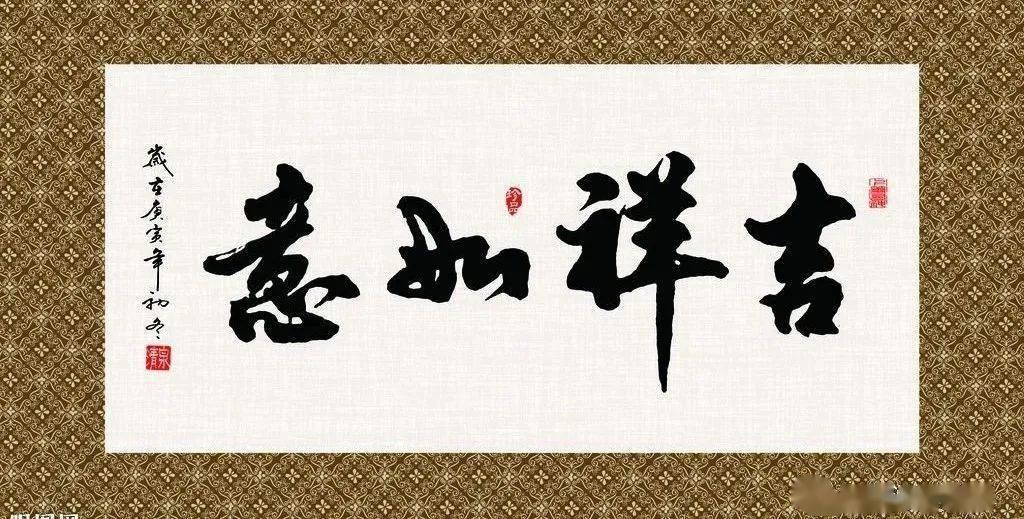 吉祥如意
珍品
歲在庚寅年初冬